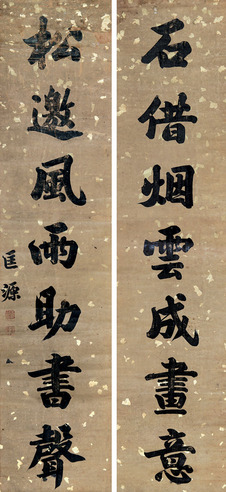 石借烟雲成畫意
松邀風雨助書聲
匡源